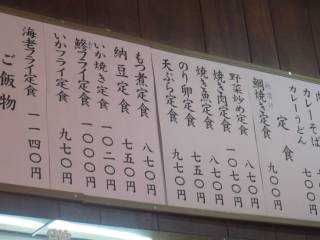 カレーそば
カレーうどん
定食
鯛焼き定食 九〇〇円
野菜炒め定食 八七〇円
焼き肉定食 一〇七〇円
焼き魚定食 九〇〇円
のり卵定食 七五〇円
天ぷら定食 九七〇円
もつ煮定食 八七〇円
納豆定食 七五〇円
いか焼き定食 一〇二〇円
鯵フライ定食 一〇〇〇円
いかフライ定食 九七〇円
海老フライ定食 一一四〇円
ご飯物